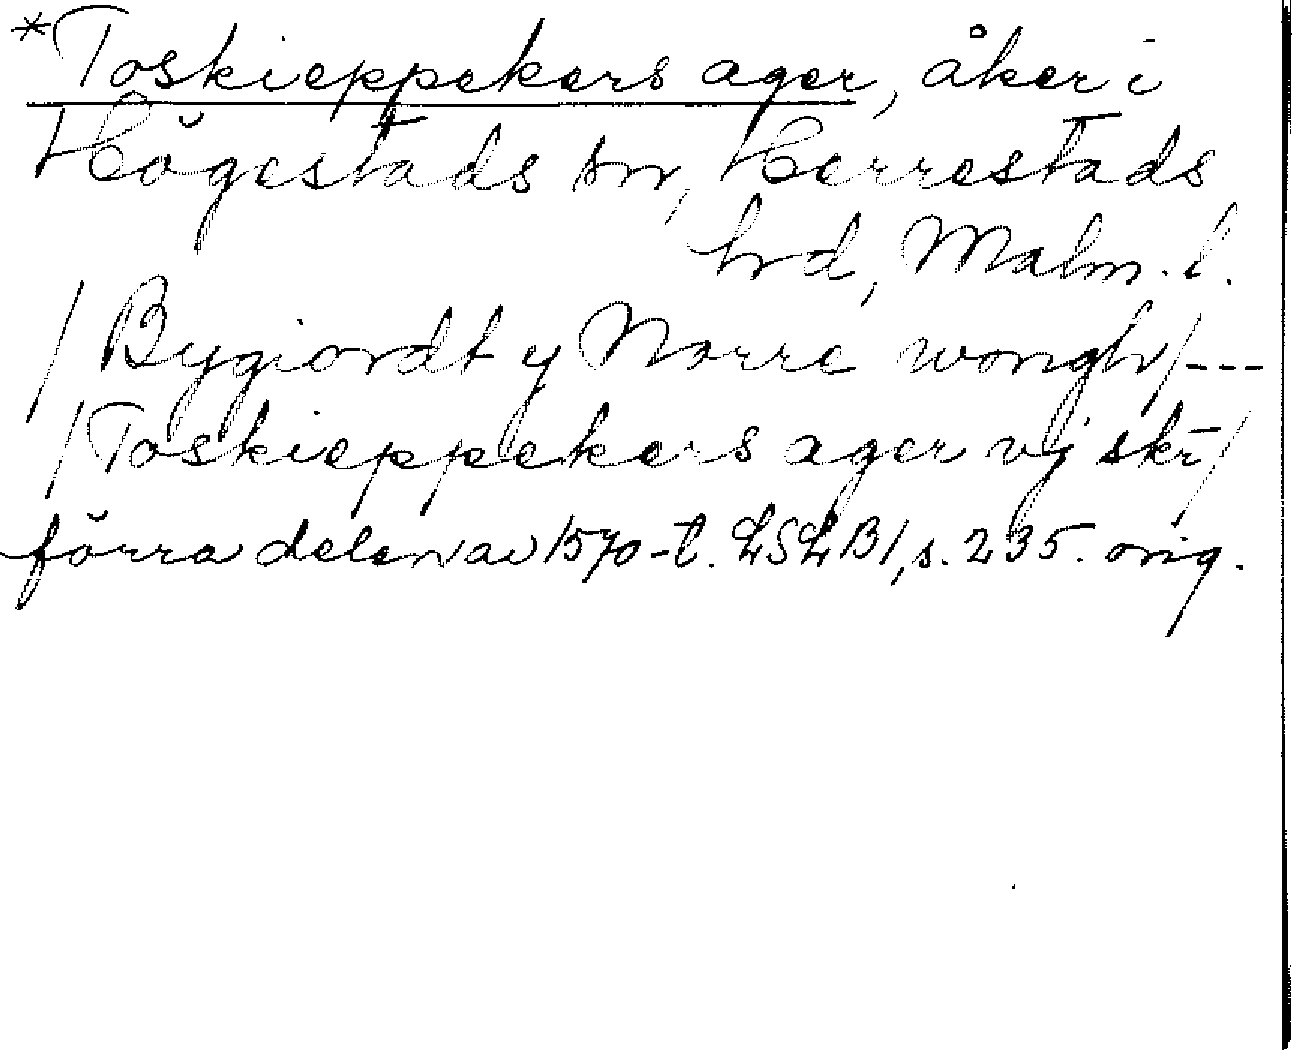 *Toskieppekers ager, åker i
Högestads sn, Herrestads
hrd, Malm. l.
/Bygiordt y Norre wongh/---
/Toskieppekers ager vj skr̄/
förra delen av 1570-t. LSLB1, s. 235. orig.